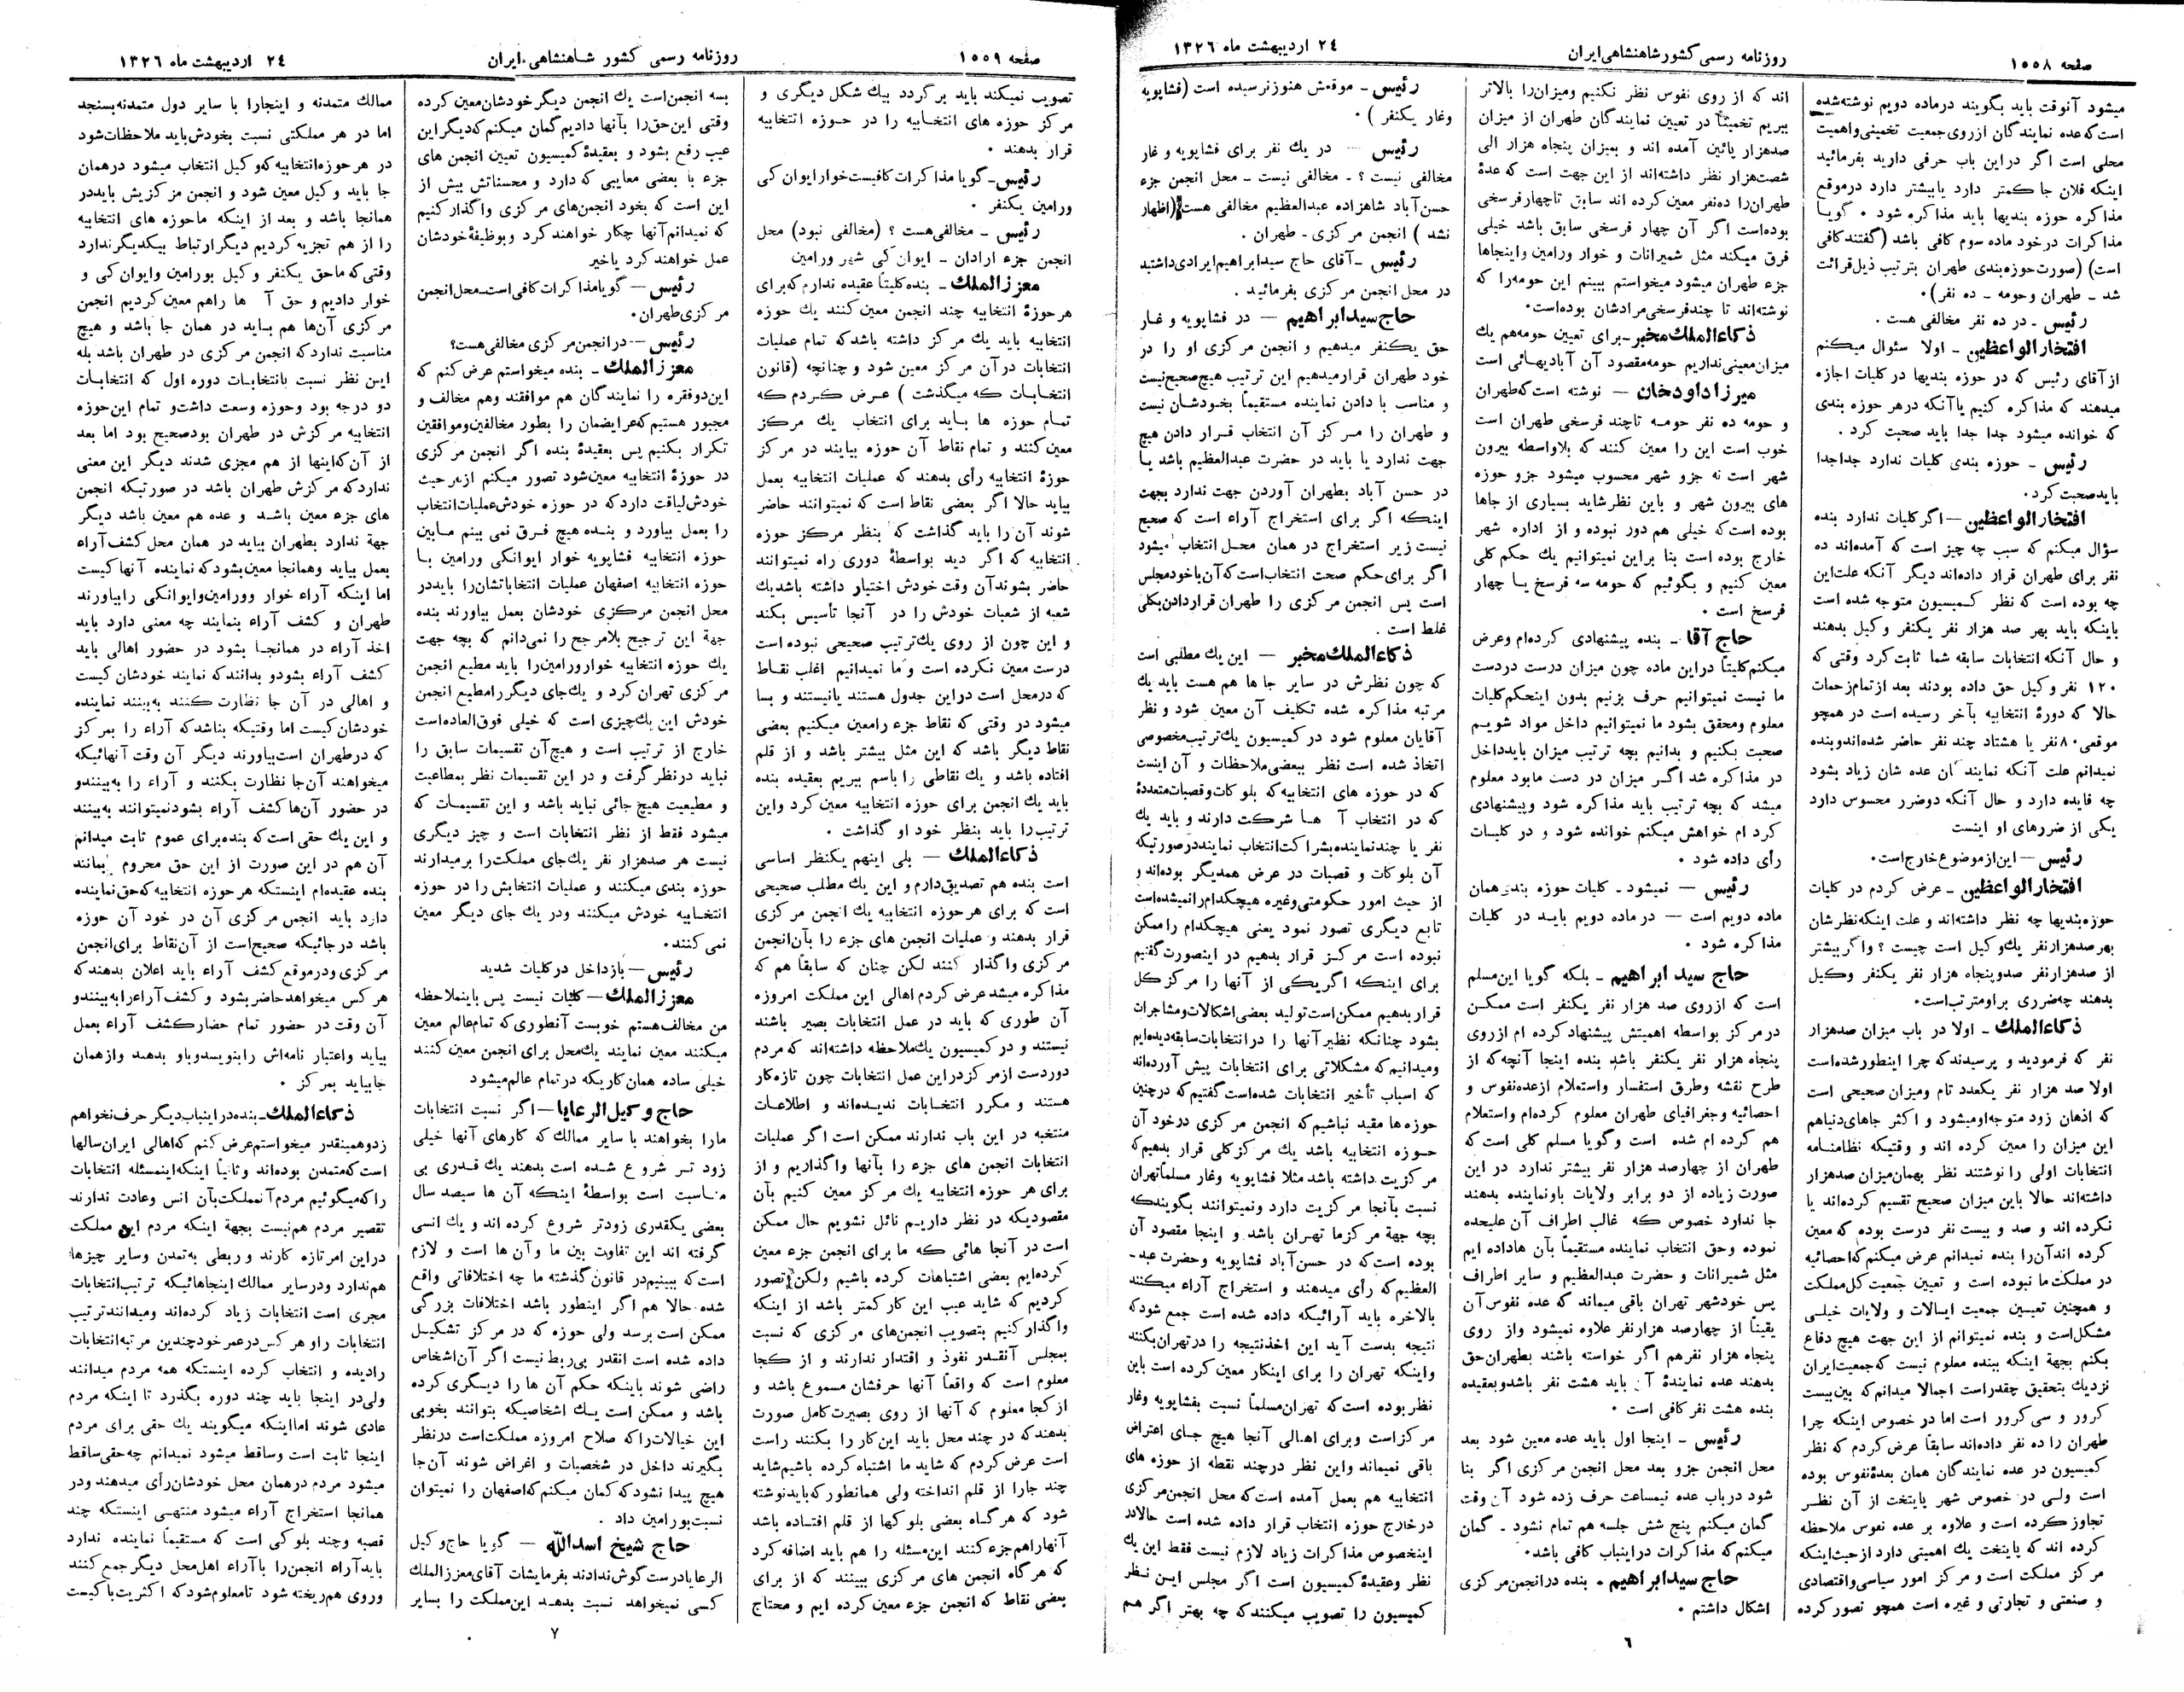 صفحه ۱۵۵۸
روزنامه رسمی کشور شاهنشاهی ایران
۲٤ اردیبهشت ماه ۱۳۲٦
میشود آنوقت باید بگویند درماده دویم نوشته‌شده
است که‌عده نمایندگان ازروی جمعیت تخمینی‌واهمیت
محلی است اگر دراین باب حرفی دارید بفرمائید
اینکه فلان جا کمتر دارد یابیشتر دارد درموقع
مذاکره حوزه بندیها باید مذاکره شود ۰ گویا
مذاکرات درخود ماده سوم کافی باشد (گفتندکافی
است) (صورت‌حوزه‌بندی طهران بترتیب ذیل‌قرائت
شد ـ طهران وحومه ـ ده نفر)۰
رئیس ـ در ده نفر مخالفی هست ۰
افتخارالواعظین ـ اولا سئوال میکنم
از آقای رئیس که در حوزه بندیها در کلیات اجازه
میدهند که مذاکره کنیم یاآنکه درهر حوزه بندی
که خوانده میشود جدا جدا باید صحبت کرد ۰
رئیس ـ حوزه بندی کلیات ندارد جداجدا
بایدصحبت کرد۰
افتخارالواعظین ـ اگرکلیات ندارد بنده
سؤال میکنم که سبب چه چیز است که آمده‌اند ده
نفر برای طهران قرار داده‌اند دیگر آنکه علت‌این
چه بوده است که نظر کمیسیون متوجه شده است
باینکه باید بهر صد هزار نفر یکنفر وکیل بدهند
و حال آنکه انتخابات سابقه شما ثابت کرد وقتی که
۱۲۰ نفر وکیل حق داده بودند بعد ازتمام‌زحمات
حالا که دورهٔ انتخابیه بآخر رسیده است در همچو
موقعی۸۰نفر یا هشتاد چند نفر حاضر شده‌اندوبنده
نمیدانم علت آنکه نمایندگان عده شان زیاد بشود
چه فایده دارد و حال آنکه دوضرر محسوس دارد
یکی از ضررهای او اینست
رئیس ـ این‌ازموضوع خارج است۰
افتخارالواعظین ـ عرض کردم در کلیات
حوزه‌بندیها چه نظر داشته‌اند و علت اینکه‌نظرشان
بهرصدهزارنفر یك‌وکیل است چیست ؟ واگربیشتر
از صدهزارنفر صدوپنجاه هزار نفر یکنفر وکیل
بدهند چه‌ضرری براومترتب‌است۰
ذکاءالملك ـ اولا در باب میزان صدهزار
نفر که فرمودید و پرسیدندکه چرا اینطورشده‌است
اولا صد هزار نفر یکعدد تام ومیزان صحیحی است
که اذهان زود متوجه‌اومیشود و اکثر جاهای‌دنیاهم
این میزان را معین کرده اند و وقتیکه نظامنامه
انتخابات اولی را نوشتند نظر بهمان‌میزان صدهزار
داشته‌اند حالا باین میزان صحیح تقسیم کرده‌اند یا
نکرده اند و صد و بیست نفر درست بوده که معین
کرده اندآن‌را بنده نمیدانم عرض میکنم‌که‌احصائیه
در مملکت ما نبوده است و تعیین جمعیت کل‌مملکت
و همچنین تعیین جمعیت ایالات و ولایات خیلی
مشکل‌است و بنده نمیتوانم از این جهت هیچ دفاع
بکنم بجهة اینکه ببنده معلوم نیست که‌جمعیت‌ایران
نزدیك بتحقیق چقدراست اجمالا میدانم‌که بین‌بیست
کرور و سی کرور است اما در خصوص اینکه چرا
طهران را ده نفر داده‌اند سابقاً عرض کردم که نظر
کمیسیون در عده نمایندگان همان بعدهٔ‌نفوس بوده
است ولی در خصوص شهر پایتخت از آن نظر
تجاوز کرده است و علاوه بر عده نفوس ملاحظه
کرده اند که پایتخت یك اهمیتی دارد ازحیث‌اینکه
مرکز مملکت است و مرکز امور سیاسی‌واقتصادی
و صنعتی و تجارتی و غیره است همچو تصور کرده
اند که از روی نفوس نظر نکنیم ومیزان‌را بالاتر
ببریم تخمیناً در تعیین نمایندگان طهران از میزان
صدهزار پائین آمده اند و بمیزان پنجاه هزار الی
شصت‌هزار نظر داشته‌اند از این جهت است که عدهٔ
طهران‌را ده‌نفر معین کرده اند سابق تاچهارفرسخی
بوده‌است اگر آن چهار فرسخی سابق باشد خیلی
فرق میکند مثل شمیرانات و خوار ورامین واینجاها
جزء طهران میشود میخواستم ببینم این حومه‌را که
نوشته‌اند تا چندفرسخی‌مرادشان بوده‌است۰
ذکاءالملك‌مخبر ـ برای تعیین حومه‌هم یك
میزان‌معینی‌نداریم حومه‌مقصود آن آبادیهائی است
میرزاداودخان ـ نوشته است که‌طهران
و حومه ده نفر حومه تاچند فرسخی طهران است
خوب است این را معین کنند که بلاواسطه بیرون
شهر است نه جزو شهر محسوب میشود جزو حوزه
های بیرون شهر و باین نظرشاید بسیاری از جاها
بوده است‌که خیلی هم دور نبوده و از اداره شهر
خارج بوده است بنا براین نمیتوانیم یك حکم‌کلی
معین کنیم و بگوئیم که حومه سه فرسخ یا چهار
فرسخ است ۰
حاج آقا ـ بنده پیشنهادی کرده‌ام وعرض
میکنم‌کلیتاً دراین ماده چون میزان درست دردست
ما نیست نمیتوانیم حرف بزنیم بدون اینحکم‌کلیات
معلوم ومحقق بشود ما نمیتوانیم داخل مواد شویم
صحبت بکنیم و بدانیم بچه ترتیب میزان بایدداخل
در مذاکره شد اگر میزان در دست مابود معلوم
میشد که بچه ترتیب باید مذاکره شود وپیشنهادی
کرده ام خواهش میکنم خوانده شود و در کلیات
رأی داده شود ۰
رئیس ـ نمیشود ـ کلیات حوزه بندی همان
ماده دویم است ـ در ماده دویم باید در کلیات
مذاکره شود ۰
حاج سید ابراهیم ـ بلکه گویا این‌مسلم
است که ازروی صد هزار نفر یکنفر است ممکن
درمرکز بواسطه اهمیتش پیشنهاد کرده ام ازروی
پنجاه هزار نفر یکنفر باشد بنده اینجا آنچه‌که از
طرح نقشه وطرق استفسار واستعلام ازعده‌نفوس و
احصائیه وجغرافیای طهران معلوم کرده‌ام واستعلام
هم کرده ام شده است وگویا مسلم کلی است که
طهران از چهارصد هزار نفر بیشتر ندارد در این
صورت زیاده از دو برابر ولایات باونماینده بدهند
جا ندارد خصوص که غالب اطراف آن علیحده
نموده وحق انتخاب نماینده مستقیماً بآن هاداده ایم
مثل شمیرانات و حضرت عبدالعظیم و سایر اطراف
پس خودشهر تهران باقی میماند که عده نفوس‌آن
یقیناً از چهارصد هزارنفر علاوه نمیشود واز روی
پنجاه هزار نفرهم اگر خواسته باشند بطهران‌حق
بدهند عده نمایندهٔ آن باید هشت نفر باشدوبعقیده
بنده هشت نفرکافی است ۰
رئیس ـ اینجا اول باید عده معین شود بعد
محل انجمن جزو بعد محل انجمن مرکزی اگر بنا
شود درباب عده نیمساعت حرف زده شود آن وقت
گمان میکنم پنج شش جلسه هم تمام نشود ـ گمان
میکنم‌که مذاکرات دراینباب کافی باشد۰
حاج سیدابراهیم ـ بنده درانجمن‌مرکزی
اشکال داشتم ۰
رئیس ـ موقعش هنوزنرسیده است (فشاپویه
وغار یکنفر ) ۰
رئیس ـ در یك نفر برای فشاپویه و غار
مخالفی نیست ؟ ـ مخالفی نیست ـ محل انجمن جزء
حسن‌آباد شاهزاده عبدالعظیم مخالفی هست (اظهار
نشد ) انجمن مرکزی ـ طهران ۰
رئیس ـ آقای حاج سیدابراهیم‌ایرادی‌داشتید
در محل انجمن مرکزی بفرمائید ۰
حاج سیدابراهیم ـ در فشاپویه و غار
حق یکنفر میدهیم و انجمن مرکزی او را در
خود طهران قرارمیدهیم این ترتیب هیچ‌صحیح‌نیست
و مناسب با دادن نماینده مستقیماً بخودشان نیست
و طهران را مرکز آن انتخاب قرار دادن هیچ
جهت ندارد یا باید در حضرت عبدالعظیم باشد یا
در حسن آباد بطهران آوردن جهت ندارد بجهت
اینکه اگر برای استخراج آراء است که صحیح
نیست زیر استخراج در همان محل انتخاب میشود
اگر برای‌حکم صحت انتخاب‌است‌که‌آن‌باخودمجلس
است پس انجمن مرکزی را طهران قراردادن‌بکلی
غلط است ۰
ذکاءالملك‌مخبر ـ این یك مطلبی است
که چون نظرش در سایر جا ها هم هست باید یك
مرتبه مذاکره شده تکلیف آن معین شود و نظر
آقایان معلوم شود درکمیسیون یك‌ترتیب‌مخصوصی
اتخاذ شده است نظر ببعضی‌ملاحظات و آن اینست
که در حوزه های انتخابیه‌که بلوکات‌وقصبات‌متعددهٔ
که در انتخاب آ ها شرکت دارند و باید یك
نفر یا چندنماینده‌بشراکت‌انتخاب نماینددرصورتیکه
آن بلوکات و قصبات در عرض همدیگر بوده‌اند و
از حیث امور حکومتی‌وغیره هیچکدام‌رانمیشده‌است
تابع دیگری تصور نمود یعنی هیچکدام راممکن
نبوده است مرکز قرار بدهیم در اینصورت‌گفتیم
برای اینکه اگریکی از آنها را مرکز کل
قراربدهیم ممکن‌است‌تولید بعضی‌اشکالات‌ومشاجرات
بشود چنانکه نظیرآنها را درانتخابات‌سابقه‌دیده‌ایم
ومیدانیم‌که مشکلاتی برای انتخابات پیش آورده‌اند
که اسباب تأخیر انتخابات شده‌است گفتیم‌که درچنین
حوزه‌ها مقید نباشیم‌که انجمن مرکزی درخود آن
حوزه انتخابیه باشد یك مرکزکلی قرار بدهیم‌که
مرکزیت داشته باشد مثلا فشاپویه وغار مسلماً‌تهران
نسبت بآنجا مرکزیت دارد ونمیتوانند بگویندکه
بچه جهة مرکزما تهران باشد و اینجا مقصود آن
بوده است‌که در حسن‌آباد فشاپویه وحضرت عبد ـ
العظیم‌که رأی میدهند و استخراج آراء میکنند
بالاخره باید آرائیکه داده شده است جمع شودکه
نتیجه بدست آید این اخذنتیجه را درتهران‌بکنند
واینکه تهران را برای اینکار معین کرده است باین
نظربوده است‌که تهران‌مسلماً نسبت بفشاپویه وغار
مرکزاست وبرای اهالی آنجا هیچ جای اعتراض
باقی نمیماند واین نظر درچند نقطه از حوزه های
انتخابیه هم بعمل آمده است‌که محل انجمن‌مرکزی
درخارج حوزه انتخاب قرار داده شده است حالادر
اینخصوص مذاکرات زیاد لازم نیست فقط این یك
نظر وعقیدهٔ کمیسیون است اگر مجلس این نظر
کمیسیون را تصویب میکنندکه چه بهتر اگر هم
٦
صفحه ۱۵۵۹
روزنامه رسمی کشور شاهنشاهی ایران
۲٤ اردیبهشت ماه ۱۳۲٦
تصویب نمیکند باید برگردد بیك شکل دیگری و
مرکز حوزه های انتخابیه را در حوزه انتخابیه
قرار بدهند ۰
رئیس ـ گویا مذاکرات کافیست‌خوار ایوان کی
ورامین یکنفر ۰
رئیس ـ مخالفی‌هست ؟ (مخالفی نبود) محل
انجمن جزء ارادان ـ ایوان کی شهر ورامین
معززالملك ـ بنده‌کلیتاً عقیده ندارم که‌برای
هرحوزهٔ انتخابیه چند انجمن معین کنند یك حوزه
انتخابیه باید یك مرکز داشته باشدکه تمام عملیات
انتخابات درآن مرکز معین شود و چنانچه (قانون
انتخابات که میگذشت ) عرض کردم که
تمام حوزه ها باید برای انتخاب یك مرکز
معین کنند و تمام نقاط آن حوزه بیایند در مرکز
حوزهٔ انتخابیه رأی بدهند که عملیات انتخابیه بعمل
بیاید حالا اگر بعضی نقاط است که نمیتوانند حاضر
شوند آن را باید گذاشت که بنظر مرکز حوزه
انتخابیه که اگر دید بواسطهٔ دوری راه نمیتوانند
حاضر بشوند آن وقت خودش اختیار داشته باشدیك
شعبه از شعبات خودش را در آنجا تأسیس بکند
و این چون از روی یك‌ترتیب صحیحی نبوده است
درست معین نکرده است و ما نمیدانیم اغلب نقاط
که درمحل است دراین جدول هستند یانیستند و بسا
میشود در وقتی که نقاط جزء رامعین میکنیم بعضی
نقاط دیگر باشد که این مثل بیشتر باشد و از قلم
افتاده باشد و یك نقاطی را باسم ببریم بعقیده بنده
باید یك انجمن برای حوزه انتخابیه معین کرد واین
ترتیب‌را باید بنظر خود او گذاشت ۰
ذکاءالملك ـ بلی اینهم یکنظر اساسی
است بنده هم تصدیق‌دارم و این یك مطلب صحیحی
است که برای هر حوزه انتخابیه یك انجمن مرکزی
قرار بدهند و عملیات انجمن های جزء را بآن‌انجمن
مرکزی واگذار کنند لکن چنان که سابقاً هم که
مذاکره میشد عرض کردم اهالی این مملکت امروزه
آن طوری که باید در عمل انتخابات بصیر باشند
نیستند و در کمیسیون یك‌ملاحظه داشته‌اند که‌مردم
دوردست ازمرکز دراین عمل انتخابات چون تازه‌کار
هستند و مکرر انتخابات ندیده‌اند و اطلاعات
منتخبه در این باب ندارند ممکن است اگر عملیات
انتخابات انجمن های جزء را بآنها واگذاریم و از
برای هر حوزه انتخابیه یك مرکز معین کنیم بآن
مقصودیکه در نظر داریم نائل نشویم حال ممکن
است در آنجا هائی که ما برای انجمن جزء معین
کرده‌ایم بعضی اشتباهات کرده باشیم ولکن تصور
کردیم که شاید عیب این کارکمتر باشد از اینکه
واگذارکنیم بتصویب انجمن‌های مرکزی که نسبت
بمجلس آنقدر نفوذ و اقتدار ندارند و از کجا
معلوم است که واقعاً آنها حرفشان مسموع باشد و
ازکجا معلوم که آنها از روی بصیرت‌کامل صورت
بدهندکه در چند محل باید این‌کار را بکنند راست
است عرض کردم که شاید ما اشتباه کرده باشیم‌شاید
چند جارا از قلم انداخته ولی همانطور که بایدنوشته
شود که هرگاه بعضی بلوکها از قلم افتاده باشد
آنهاراهم جزء کنند این‌مسئله را هم باید اضافه‌کرد
که هرگاه انجمن های مرکزی ببینند که از برای
بعضی نقاط که انجمن جزء معین کرده ایم و محتاج
بسه انجمن‌است یك انجمن دیگر خودشان‌معین کرده
وقتی این‌حق‌را بآنها دادیم گمان میکنم که‌دیگراین
عیب رفع بشود و بعقیدهٔ کمیسیون تعیین انجمن های
جزء با بعضی معایبی که دارد و محسناتش بیش از
این است که بخود انجمن‌های مرکزی واگذارکنیم
که نمیدانم‌آنها چکار خواهند کرد و بوظیفهٔ‌خودشان
عمل خواهند کرد یاخیر
رئیس ـ گویامذاکرات کافی‌است‌ـ‌محل‌انجمن
مرکزی‌طهران۰
رئیس ـ در انجمن‌مرکزی مخالفی‌هست؟
معززالملك ـ بنده میخواستم عرض کنم که
این‌دوفقره را نمایندگان هم موافقند وهم مخالف و
مجبور هستیم‌که‌عرایضمان را بطور مخالفین‌وموافقین
تکرار بکنیم پس بعقیدهٔ بنده اگر انجمن مرکزی
در حوزهٔ انتخابیه معین‌شود تصور میکنم ازهرحیث
خودش‌لیاقت داردکه در حوزه خودش‌عملیات‌انتخاب
را بعمل بیاورد و بنده هیچ فرق نمی بینم مابین
حوزه انتخابیه فشاپویه خوار ایوانکی ورامین با
حوزه انتخابیه اصفهان عملیات انتخاباتشان‌را بایددر
محل انجمن مرکزی خودشان بعمل بیاورند بنده
جهة این ترجیح بلامرجح را نمی‌دانم که بچه جهت
یك حوزه انتخابیه خوارورامین‌را باید مطیع انجمن
مرکزی تهران کرد و یك‌جای دیگررامطیع انجمن
خودش این یك‌چیزی است که خیلی فوق‌العاده‌است
خارج از ترتیب است و هیچ‌آن تقسیمات سابق را
نباید درنظر گرفت و در این تقسیمات نظر بمطاعیت
و مطیعیت هیچ جائی نباید باشد و این تقسیمات که
میشود فقط از نظر انتخابات است و چیز دیگری
نیست هر صدهزار نفر یك‌جای مملکت‌را برمیدارند
حوزه بندی میکنند و عملیات انتخابش را در حوزه
انتخابیه خودش میکنند ودر یك جای دیگر معین
نمی کنند۰
رئیس ـ بازداخل درکلیات شدید
معززالملك ـ کلیات نیست پس باینملاحظه
من مخالف‌هستم خوبست آنطوری که تمام‌عالم معین
میکنند معین نمایند یك‌محل برای انجمن معین کنند
خیلی ساده همان‌کاریکه درتمام عالم‌میشود
حاج وکیل‌الرعایا ـ اگر نسبت انتخابات
مارا بخواهند با سایر ممالك که کارهای آنها خیلی
زود تر شروع شده است بدهند یك قدری بی
مناسبت است بواسطهٔ اینکه آن ها سیصد سال
بعضی یکقدری زودتر شروع کرده اند و یك انسی
گرفته اند این تفاوت بین ما وآن ها است و لازم
است‌که ببینیم‌در قانون‌گذشته ما چه اختلافاتی واقع
شده حالا هم اگر اینطور باشد اختلافات بزرگی
ممکن است برسد ولی حوزه که در مرکز تشکیل
داده شده است انقدر بی‌ربط نیست اگر آن‌اشخاص
راضی شوند باینکه حکم آن ها را دیگری کرده
باشد و ممکن است یك اشخاصیکه بتوانند بخوبی
این خیالات‌راکه صلاح امروزه مملکت‌است درنظر
بگیرند داخل در شخصیات و اغراض شوند آن‌جا
هیچ پیدا نشود که گمان میکنم‌که‌اصفهان را نمیتوان
نسبت‌بورامین داد ۰
حاج شیخ اسدالله ـ گویا حاج‌وکیل
الرعایادرست‌گوش‌ندادند بفرمایشات آقای‌معززالملك
کسی نمیخواهد نسبت بدهد این‌مملکت را بسایر
ممالك متمدنه و اینجارا با سایر دول متمدنه بسنجد
اما در هر مملکتی نسبت بخودش‌باید ملاحظات‌شود
در هر حوزه‌انتخابیه که‌وکیل انتخاب میشود درهمان
جا باید وکیل معین شود و انجمن مرکزیش بایددر
همانجا باشد و بعد از اینکه ماحوزه های انتخابیه
را از هم تجزیه کردیم دیگر ارتباط بیکدیگرندارد
وقتی که ماحق یکنفر وکیل بورامین وایوان کی و
خوار دادیم و حق آ ها راهم معین کردیم انجمن
مرکزی آن‌ها هم باید در همان جا باشد و هیچ
مناسبت نداردکه انجمن مرکزی در طهران باشد بله
این نظر نسبت بانتخابات دوره اول که انتخابات
دو درجه بود وحوزه وسعت داشت‌و تمام این‌حوزه
انتخابیه مرکزش در طهران بودصحیح بود اما بعد
از آن که‌اینها از هم مجزی شدند دیگر این معنی
نداردکه مرکزش طهران باشد در صورتیکه انجمن
های جزء معین باشد و عده هم معین باشد دیگر
جهة ندارد بطهران بیاید در همان محل کشف‌آراء
بعمل بیاید وهمانجا معین‌بشودکه نماینده آنها کیست
اما اینکه آراء خوار وورامین‌وایوانکی رابیاورند
طهران و کشف آراء بنمایند چه معنی دارد باید
اخذ آراء در همانجا بشود در حضور اهالی باید
کشف آراء بشودو بدانندکه نمایند خودشان کیست
و اهالی در آن جا نظارت کنند به‌بینند نماینده
خودشان کیست اما وقتیکه بناشدکه آراء را بمرکز
که درطهران است‌بیاورند دیگر آن وقت آنهائیکه
میخواهند آن‌جا نظارت بکنند و آراء را به‌بینندو
در حضور آن‌ها کشف آراء بشود نمیتوانند به‌بینند
و این یك حقی است‌که بنده‌برای عموم ثابت میدانم
آن هم در این صورت از این حق محروم بمانند
بنده عقیده‌ام اینستکه هرحوزه انتخابیه که‌حق‌نماینده
دارد باید انجمن مرکزی آن در خود آن حوزه
باشد درجائیکه صحیح‌است از آن‌نقاط برای‌انجمن
مرکزی ودرموقع کشف آراء باید اعلان بدهندکه
هر کس میخواهدحاضربشود و کشف‌آراءرابه‌بیندو
آن وقت در حضور تمام حضارکشف آراء بعمل
بیاید واعتبار نامه‌اش رابنویسدوباو بدهند وازهمان
جابیاید بمرکز ۰
ذکاءالملك ـ بنده‌دراینباب‌دیگر حرف‌نخواهم
زدوهمینقدر میخواستم‌عرض کنم که‌اهالی ایران‌سالها
است که‌متمدن بوده‌اند وثانیاً اینکه‌اینمسئله انتخابات
راکه‌میگوئیم مردم آنمملکت‌بآن انس وعادت ندارند
تقصیر مردم هم‌نیست بجهة اینکه مردم این مملکت
دراین امرتازه کارند و ربطی به‌تمدن وسایر چیزها
هم‌ندارد ودرسایر ممالك اینجاهائیکه ترتیب‌انتخابات
مجری است انتخابات زیاد کرده‌اند ومیدانندترتیب
انتخابات راو هرکس‌درعمر خودچندین مرتبه‌انتخابات
رادیده و انتخاب کرده اینستکه همه مردم میدانند
ولی‌در اینجا باید چند دوره بگذرد تا اینکه مردم
عادی شوند امااینکه میگویند یك حقی برای مردم
اینجا ثابت است وساقط میشود نمیدانم چه‌حقی‌ساقط
میشود مردم درهمان محل خودشان‌رأی میدهند ودر
همانجا استخراج آراء میشود منتهی اینستکه چند
قصبه وچند بلوکی است که مستقیماً نماینده ندارد
بایدآراء انجمن‌را باآراء اهل‌محل دیگرجمع کنند
وروی هم‌ریخته شود تامعلوم‌شودکه اکثریت‌باکیست
۷